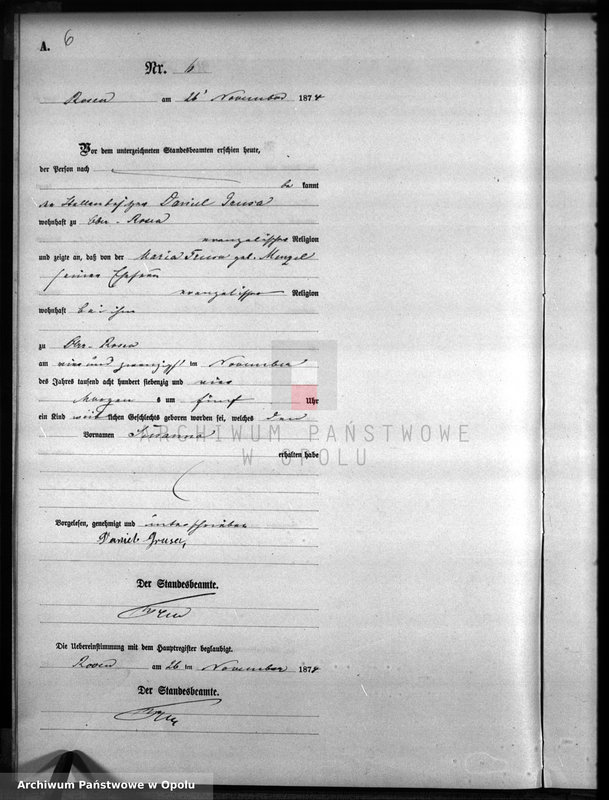 A. 6
Nr. 6
Rosen am 26ᵗ November 1874
Vor dem unterzeichneten Standesbeamten erschien heute,
der Person nach
be kannt
der Stellenbesitzer Daniel
wohnhaft zu Ober-Rosen
evangelischer Religion
und zeigte an, daß von der Maria geb. Menzel
seiner Ehefrau
evangelischer Religion
wohnhaft bei ihm
zu Ober-Rosen
am vier und zwanzigsten November
des Jahres tausend acht hundert siebenzig und vier
Morgens um fünf Uhr
ein Kind weiblichen Geschlechts geboren worden sei, welches den
Vornamen Susanna
erhalten habe
ARCHIWUM PAŃSTWOWE
W OPOLU
Vorgelesen, genehmigt und unterschrieben
Daniel
Der Standesbeamte.
Die Uebereinstimmung mit dem Hauptregister beglaubigt.
Rosen am 26 ten November 1874
Der Standesbeamte.
Archiwum Państwowe w Opolu